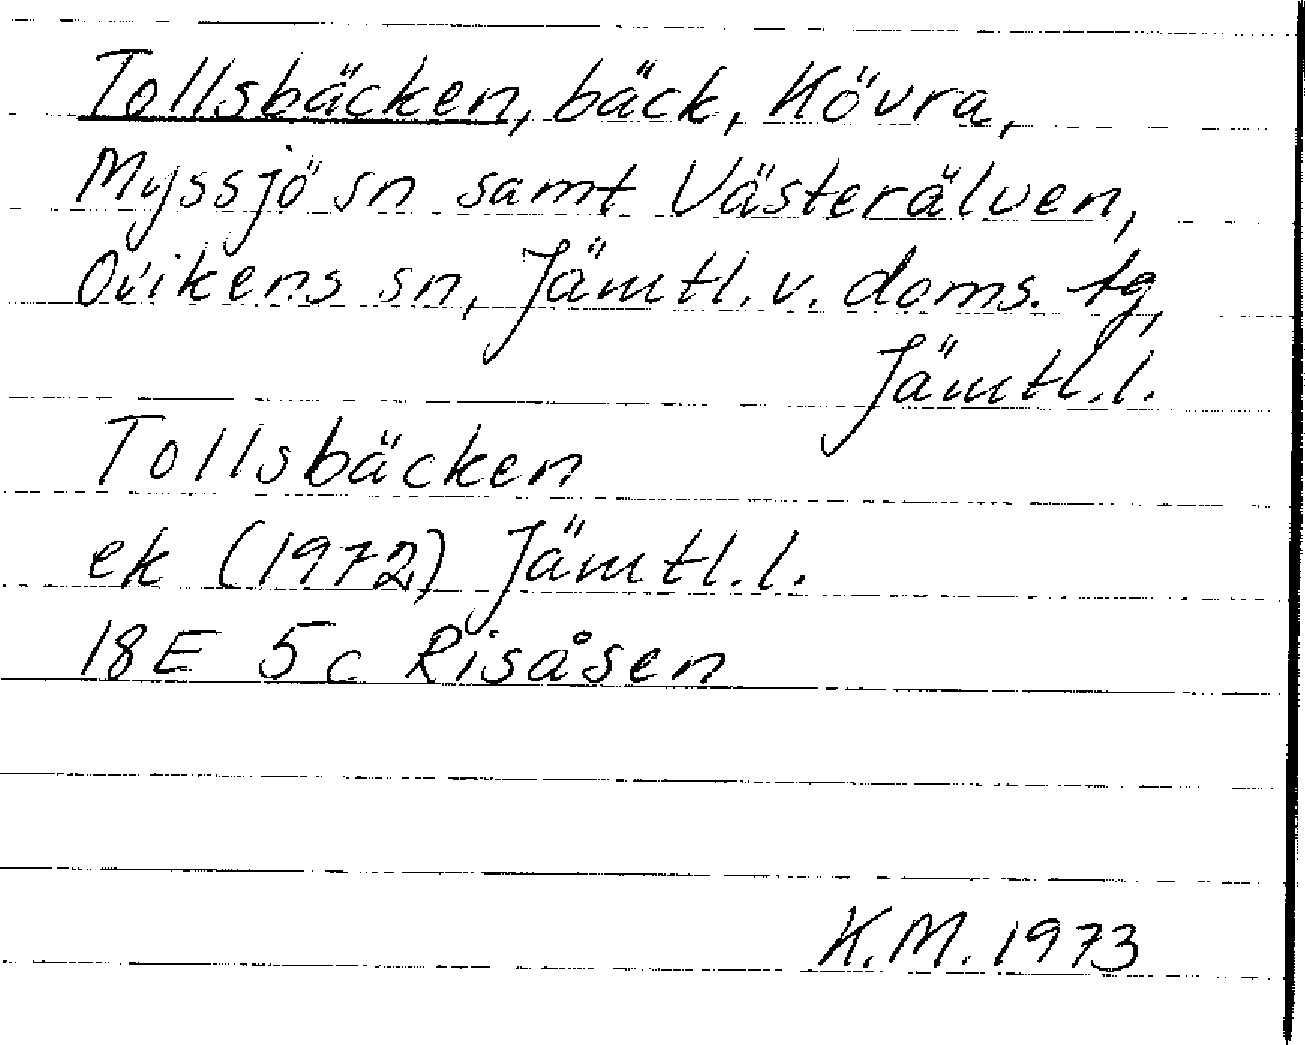 Tollsbäcken, bäck, Kövra,
Myssjö sn samt Västerälven,
Ovikens sn, Jämtl. v. doms. tg,
Jämtl.l.
Tollsbäcken
ek (1972) Jämtl.l.
18E 5c Risåsen
K.M. 1973